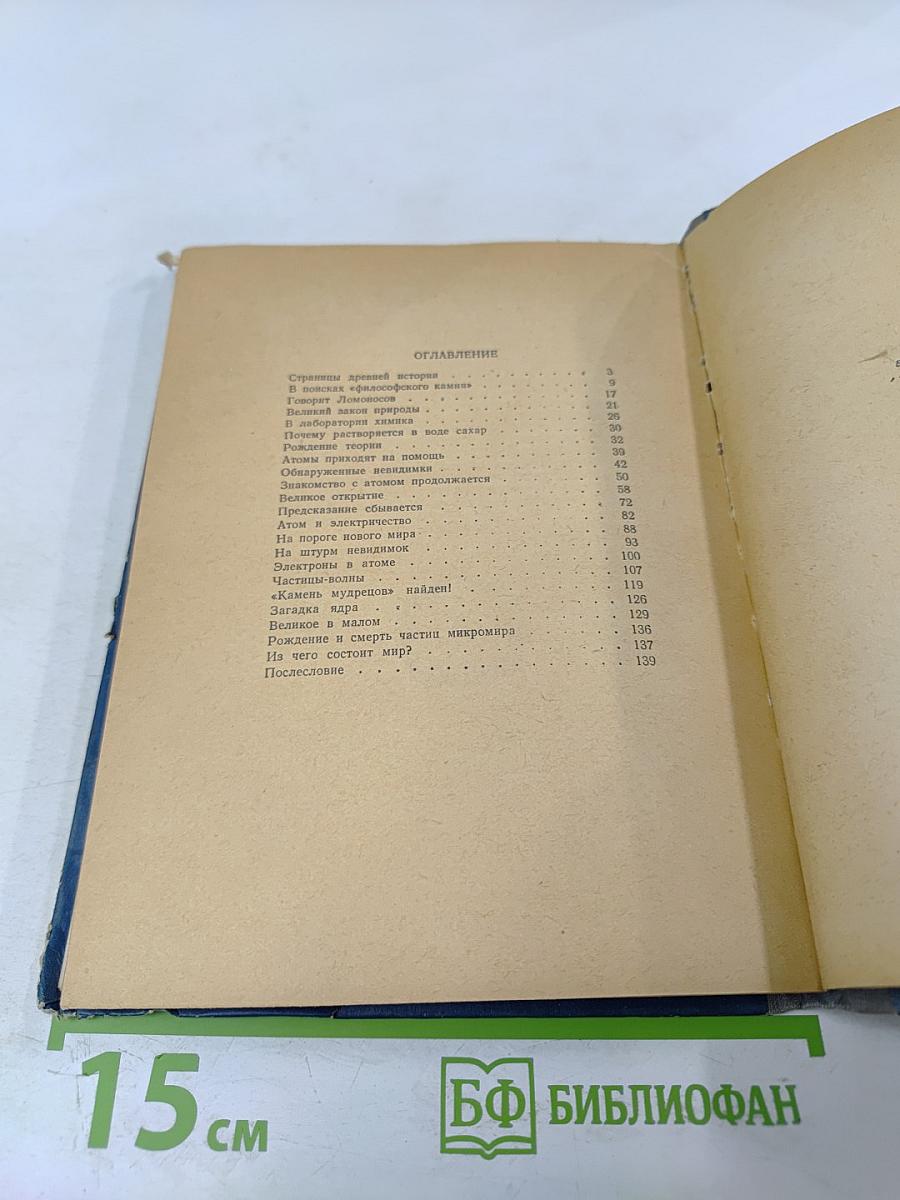 ОГЛАВЛЕНИЕ
Страницы древней истории . . . . . . . . . . 3
В поисках «философского камня» . . . . . . . . 9
Говорит Ломоносов . . . . . . . . . . . . 17
Великий закон природы . . . . . . . . . . . 21
В лаборатории химика . . . . . . . . . . . 26
Почему растворяется в воде сахар . . . . . . . 30
Рождение теории . . . . . . . . . . . . . 32
Атомы приходят на помощь . . . . . . . . . . 39
Обнаруженные невидимки . . . . . . . . . . . 42
Знакомство с атомом продолжается . . . . . . . 50
Великое открытие . . . . . . . . . . . . . 58
Предсказание сбывается . . . . . . . . . . . 72
Атом и электричество . . . . . . . . . . . 82
На пороге нового мира . . . . . . . . . . . 88
На штурм невидимок . . . . . . . . . . . . 93
Электроны в атоме . . . . . . . . . . . . 100
Частицы-волны . . . . . . . . . . . . . . 107
«Камень мудрецов» найден! . . . . . . . . . . 119
Загадка ядра . . . . . . . . . . . . . . 126
Великое в малом . . . . . . . . . . . . . 129
Рождение и смерть частиц микромира . . . . . . 136
Из чего состоит мир? . . . . . . . . . . . 137
Послесловие . . . . . . . . . . . . . . . 139
15 см
БФ БИБЛИОФАН